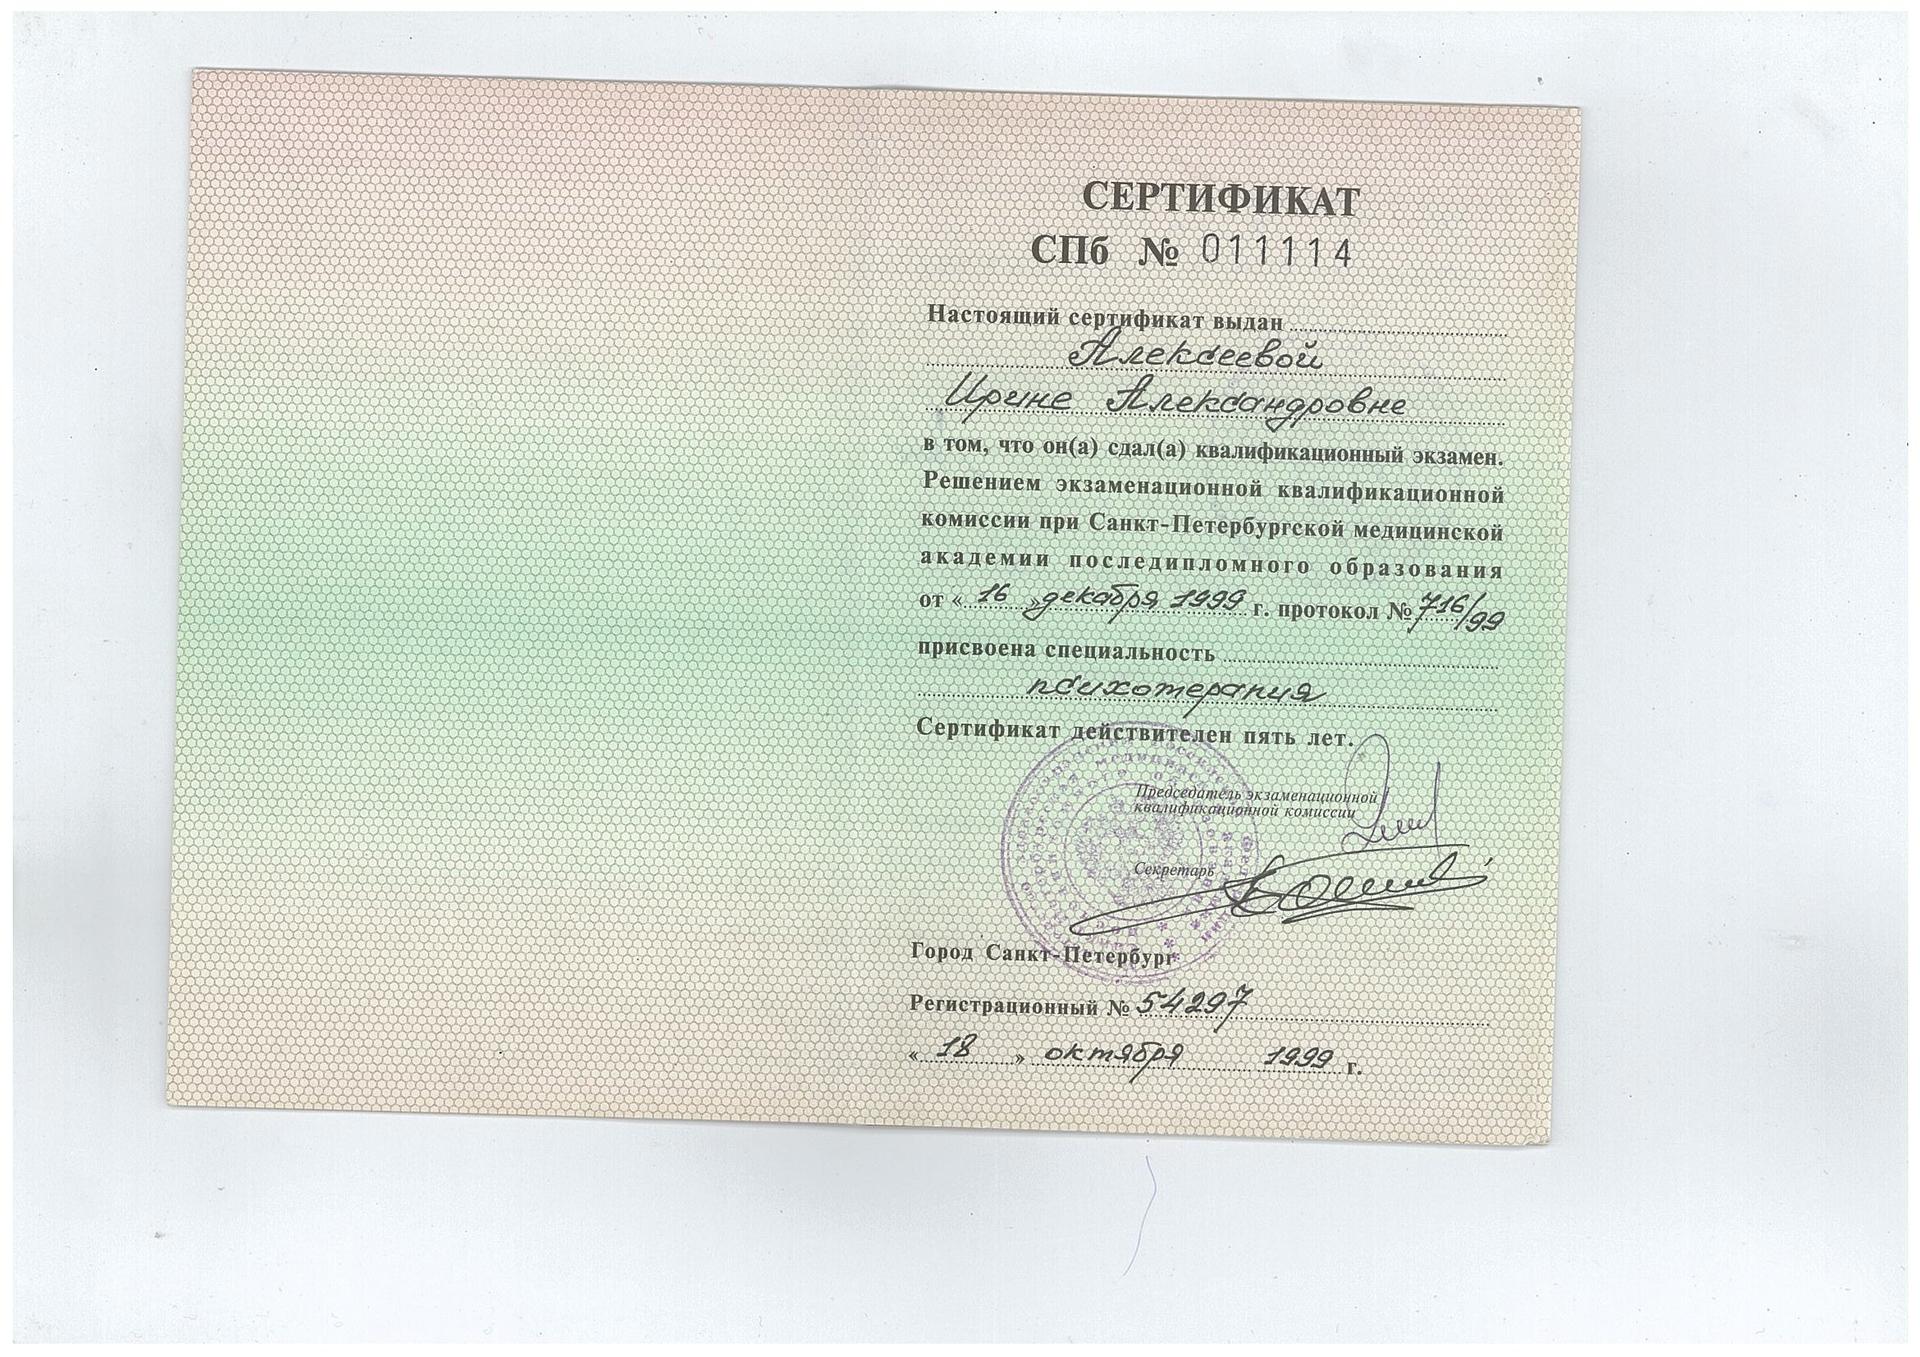 СЕРТИФИКАТ
СПб № 011114
Настоящий сертификат выдан
Алексеевой
Ирине Александровне
в том, что он(а) сдал(а) квалификационный экзамен.
Решением экзаменационной квалификационной
комиссии при Санкт-Петербургской медицинской
академии последипломного образования
от « 16 » декабря 1999 г. протокол № 716/99
присвоена специальность
психотерапия
Сертификат действителен пять лет.
Председатель экзаменационной
квалификационной комиссии
Секретарь
Город Санкт-Петербург
Регистрационный № 54297
« 18 » октября 1999 г.